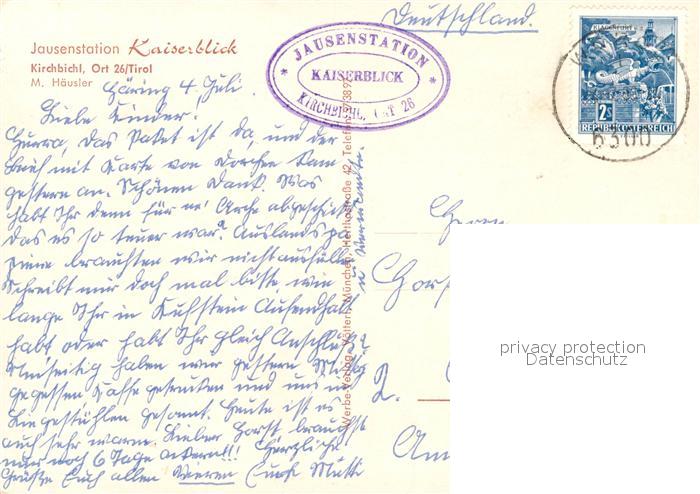 Deutschland.
Jausenstation Kaiserblick
Kirchbichl, Ort 26/Tirol
M. Häusler
* JAUSENSTATION *
KAISERBLICK
KIRCHBICHL, ORT 26
2S
REPUBLIK ÖSTERREICH
6300
Häring 4. Juli.
Liebe Kinder.
Hurra, das Paket ist da, und der
Brief mit Karte von Dorchen kam
gestern an. Schönen Dank. Was
habt Ihr denn für ne' Arche abgeschickt
das es so teuer war? Auslandspa
piere brauchten wir nicht ausfüllen
Schreibt mir doch mal bitte, wie
lange Ihr in Kufstein Aufendhalt
habt oder habt Ihr gleich Anschluß?
haben wir gestern Mittag
gegessen Kaffe getrunken und uns in
Liegestühlen gesonnt. Heute ist es
auch sehr warm. Lieber Horst brauchst
nur noch 6 Tage ackern!!! Herzliche
Grüße Euch allen Vieren Eure Mutti
u. Verwandte.
Werbe-Verlag Völterl, München, Herthastraße 42, Telefon
Herrn
Horst
2.
privacy protection
Datenschutz